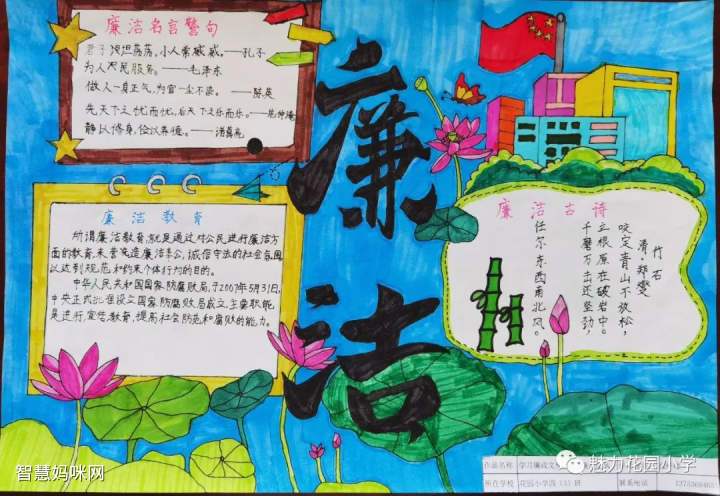 廉洁名言警句
君子坦荡荡,小人常戚戚。——孔子
为人民服务。——毛泽东
做人一身正气,为官一尘不染。——陈英
先天下之忧而忧,后天下之乐而乐。——范仲淹
静以修身,俭以养德。——诸葛亮
廉洁
廉洁教育
所谓廉洁教育,就是通过对公民进行廉洁方
面的教育,来营造廉洁奉公,诚信守法的社会氛围
以达到规范和约束个体行为的目的。
中华人民共和国国家防腐败局,于2007年5月31日,
中央正式批准设立国家防腐败局成立主要职能
是进行宣传教育,提高社会防范和腐败的能力。
廉洁古诗
竹石
清·郑燮
咬定青山不放松,
立根原在破岩中。
千磨万击还坚劲,
任尔东西南北风。
作品名称 学习廉政文
所在学校 花园小学四(3)班 联系电话
魅力花园小学
智慧妈咪网